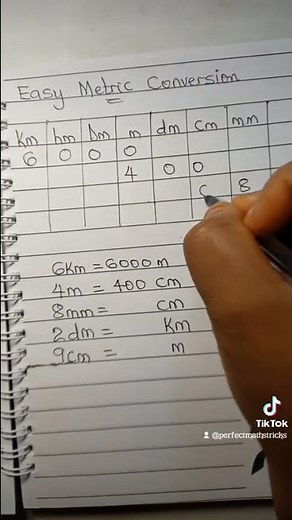 Easy Metric Conversion
Km hm Dm m dm Cm mm
6 0 0 0
4 0 0
8
6Km = 6000 m
4m = 400 cm
8mm = cm
2dm = Km
9cm = m
TikTok
@perfectmathstricks